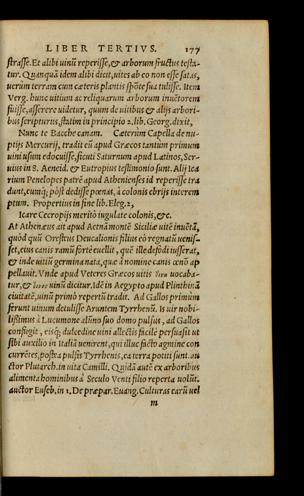 LIBER TERTIVS. 177
strasse. Et alibi uinū reperisse, & arborum fructus testa-
tur. Quanquā idem alibi dicit, uites ab eo non esse satas,
uerùm terram cum cæteris plantis spōte sua tulisse. Item
Verg. hunc uitium ac reliquarum arborum inuentorem
fuisse, asserere uidetur, quum de uitibus & alijs arbori-
bus scripturus, statim in principio 2. lib. Georg. dixit,
Nunc te Bacche canam. Cæterùm Capella de nu-
ptijs Mercurij, tradit eū apud Græcos tantùm primum
uini usum edocuisse, sicuti Saturnum apud Latinos, Ser-
uius in 8. Aeneid. & Eutropius testimonio sunt. Alij Ica
rium Penelopes patrē apud Athenienses id reperisse tra
dunt, eumq; pòst dedisse pœnas, à colonis ebrijs interem
ptum. Propertius in fine lib. Eleg. 2,
Icare Cecropijs meritò iugulate colonis, &c.
At Athenæus ait apud Aetnā montē Siciliæ uitē inuentā,
quòd quū Orestrus Deucalionis filius eò regnatū uenis-
set, eius canis ramū fortè euulit, quē ille defodi iusserat,
& inde uitiū germina nata, quæ à nomine canis œnō ap
pellauit. Vnde apud Veteres Græcos uitis uocaba-
tur, & uinū dicitur. Idē in Aegypto apud Plinthinā
ciuitatē, uinū primò repertū tradit. Ad Gallos primùm
ferunt uinum detulisse Aruntem Tyrrhenū. Is uir nobi-
lissimus à Lucumone alūno suo domo pulsus, ad Gallos
confugit, eisq; dulcedine uini allectis facilè persuasit ut
sibi auxilio in Italiā uenirent, qui illuc facto agmine con
currētes, postea pulsis Tyrrhenis, ea terra potiti sunt. au
ctor Plutarch. in uita Camilli. Quidā autē ex arboribus
alimenta hominibus à Seculo Venti filio reperta uolūt.
auctor Euseb. in 1. De præpar. Euang. Culturas earū uel
m